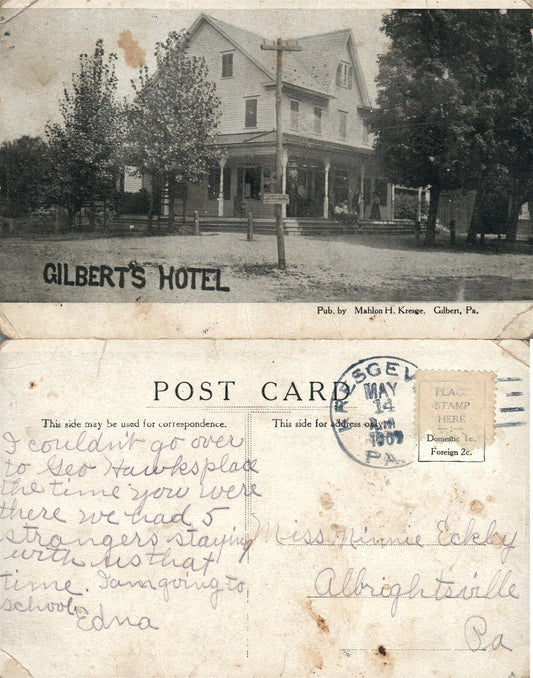 GILBERT'S HOTEL
Pub. by Mahlon H. Kresge. Gilbert, Pa.
POST CARD
This side may be used for correspondence.
This side for address only.
KRESGEV
MAY
14
1909
PA.
PLACE
STAMP
HERE
Domestic 1c.
Foreign 2c.
I couldn't go over
to Geo Hawks place
the time you were
there we had 5
strangers staying
with us that
time. I am going to
school.
Edna
Miss Minnie Eckley
Albrightsville
Pa